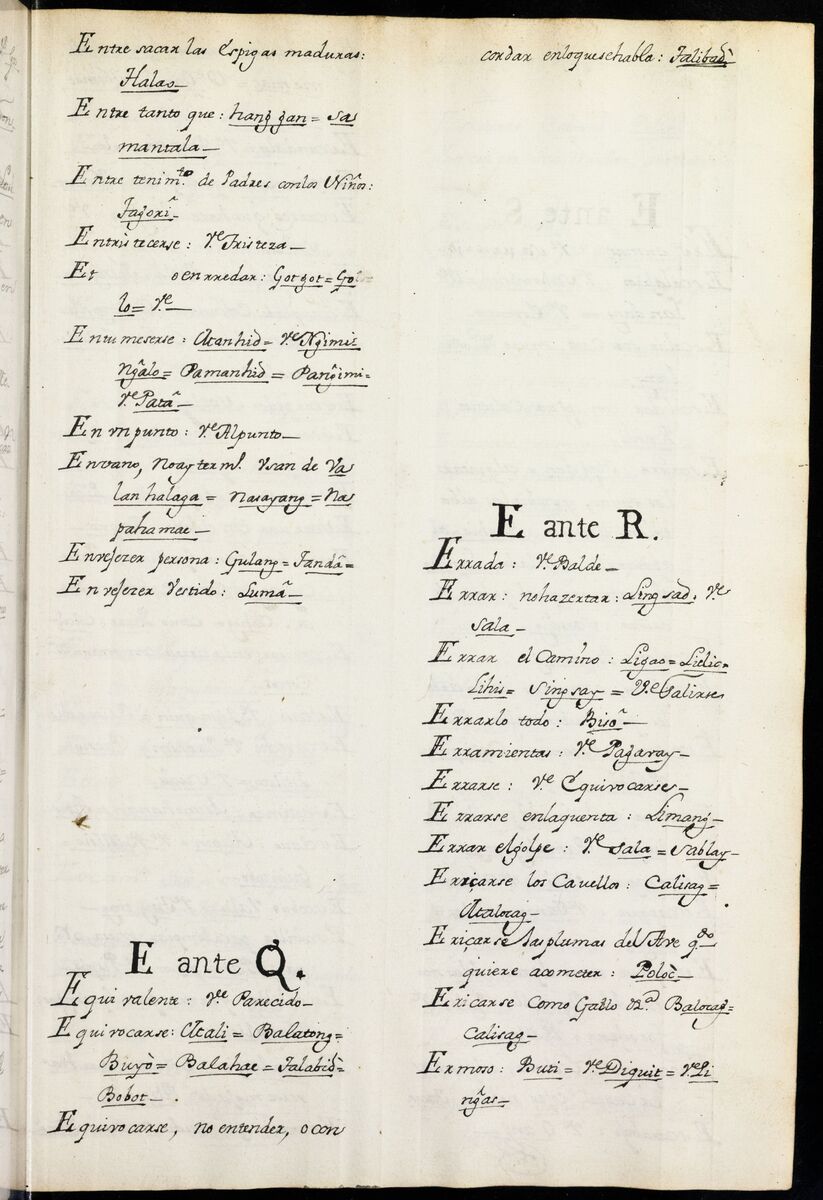 Entre sacar las espigas maduras:
Halao_
Entre tanto que: hang̃gan= sa
mantala_
Entre tenimto. de Padres conlos Niños:
Entristecerse: Ve. Tristeza_
o enrredar: Gotgot= Golo
lo= Ve_
Entumeserse: Atanhid= Ve. Ngimi=
Ng̃alo= Pamanhid= Pang̃imi=
Ve. Patâ_
En vn punto: Ve. Alpunto_
Envano, noay termo. Vsan de Va
lan halaga= nasayang= Na
pahamac_
Envejezer persona: Gulang= Tandâ=
Envejezer Vestido: Lumâ_
E ante Q.
Equivalente: Ve. Parecido_
Equivocarse: Atali= Balatong=
Buyò= Balahac= Talabid=
Bobot_
Equivocarse, no entender, o con
cordar enloquesehabla: Talibad.
E ante R.
Errada: Ve. Balde_
Errar: nohazertar: Lingsad. Ve.
sala_
Errar el Camino: Ligao= Liclic=
Lihis= singsay= Ve. Salirse
Errarlo todo: Bisô_
Erramientas: Ve. Pagaray_
Errarse: Ve. Equivocarse_
Errarse enlaquenta: Limang_
Errar elgolpe: Ve. sala= sablay_
Eriçarse los Cavellos: Calisag=
Atalocag_
Eriçarse las plumas del Ave qdo.
quiere acometer: Polòc_
Ericarse Como Gallo Va. Balocag=
Calisag_
Ermoso: Buti= Ve. Diquit= Ve. Li
ng̃as_